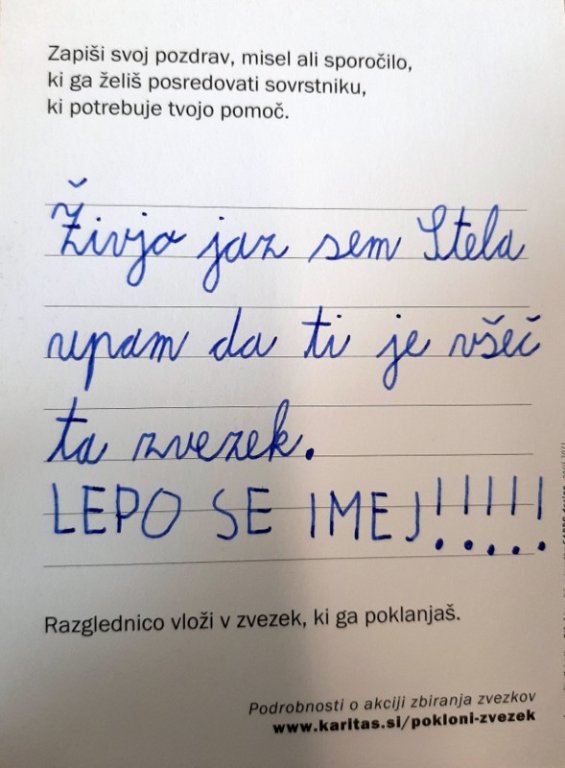 Zapiši svoj pozdrav, misel ali sporočilo,
ki ga želiš posredovati sovrstniku,
ki potrebuje tvojo pomoč.
Živjo jaz sem Stela
upam da ti je všeč
ta zvezek.
LEPO SE IMEJ!!!!!
Razglednico vloži v zvezek, ki ga poklanjaš.
Podrobnosti o akciji zbiranja zvezkov
www.karitas.si/pokloni-zvezek